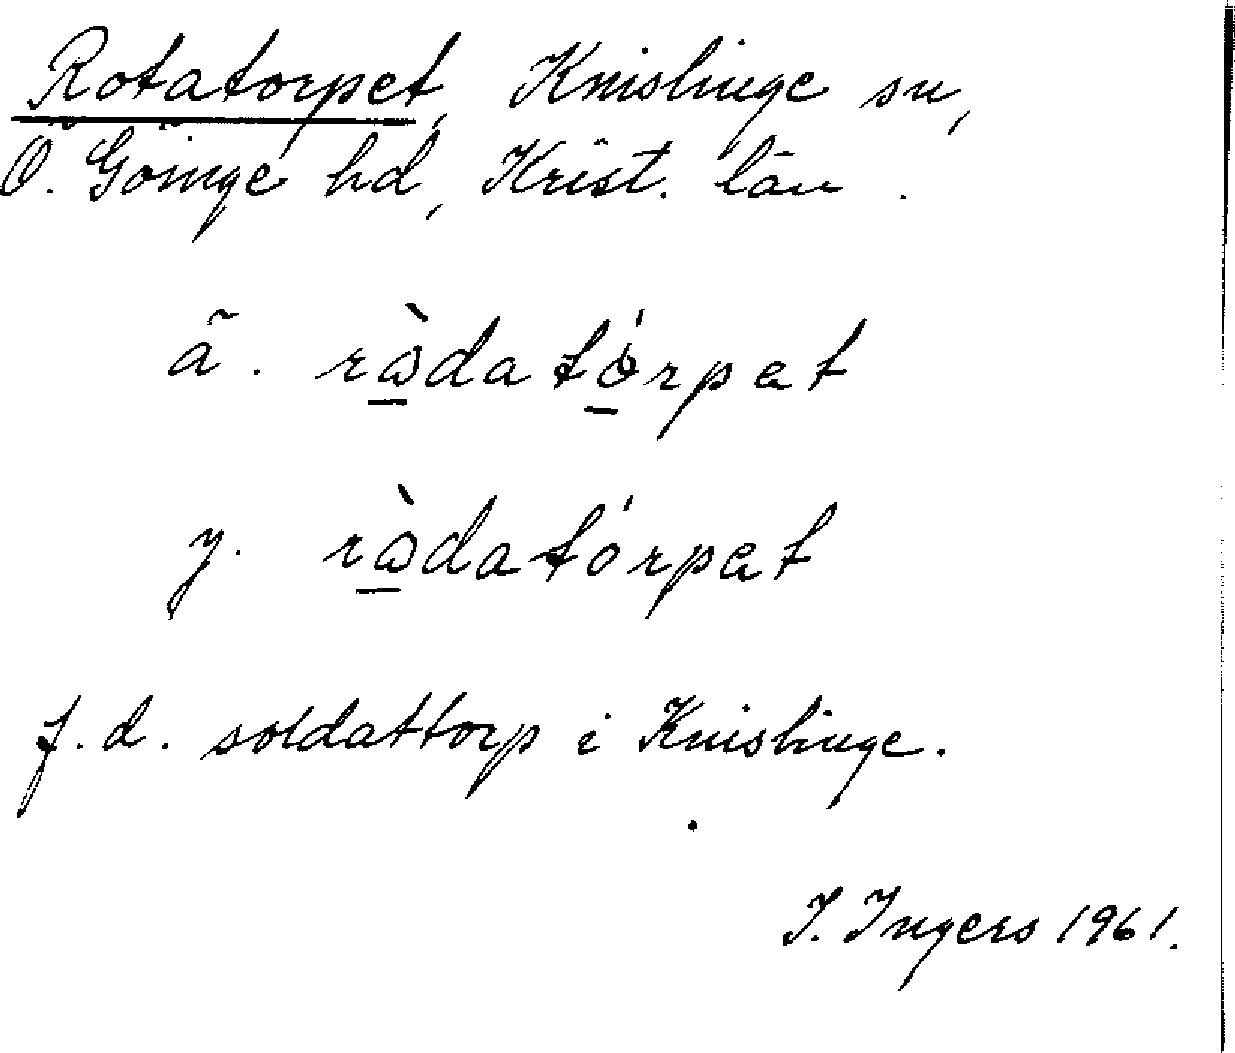 Rotatorpet, Knislinge sn,
Ö. Göinge hd, Krist. län.
ä. ràdatórpat
y. ràdatórpat
f.d. soldattorp i Knislinge.
I. Ingers 1961.